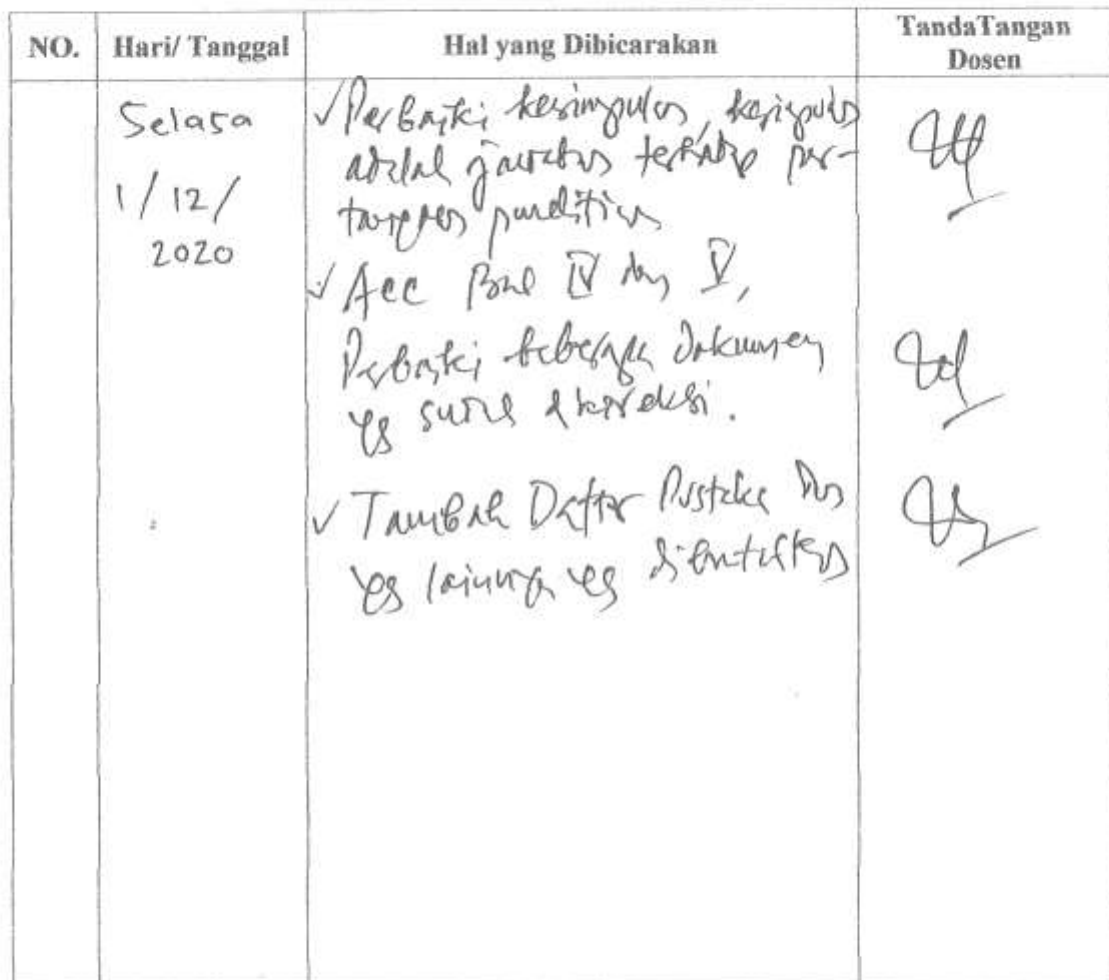 NO.
Hari/ Tanggal
Hal yang Dibicarakan
TandaTangan
Dosen
Selasa
1/12/
2020
√ Perbaiki kesimpulan, kesimpulan
adalah jawaban terhadap per-
tanyaan penelitian
√ Acc Bab IV dan V,
Perbaiki beberapa Dokumen
yg sudah dikoreksi.
√ Tambah Daftar Pustaka dan
yg lainnya yg